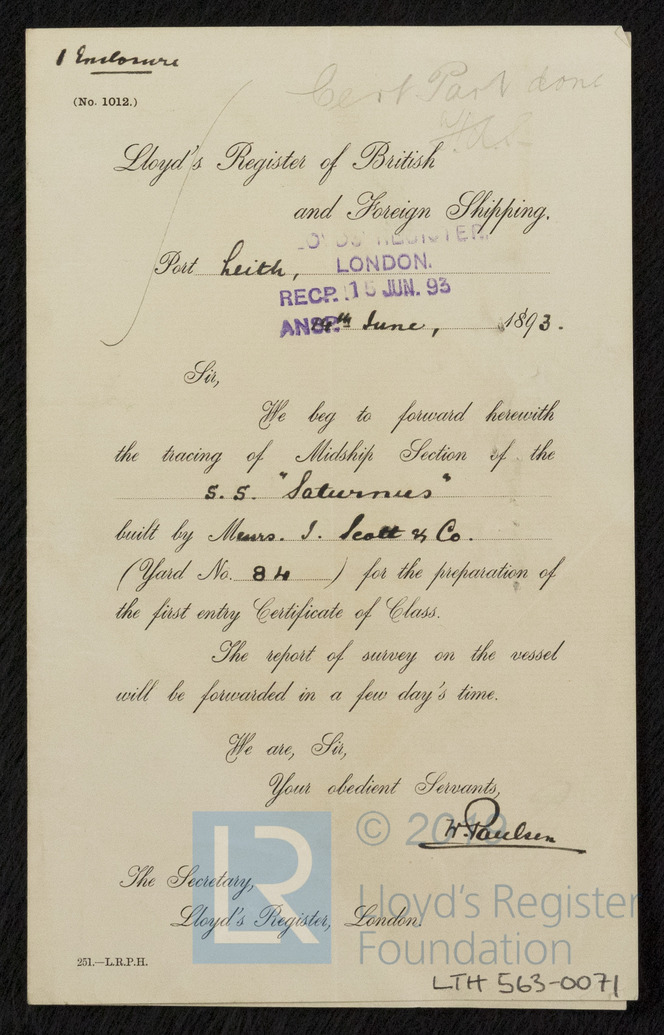 1 Enclosure
(No. 1012.)
Cert Part done
Lloyd's Register of British
and Foreign Shipping.
LOYDS' REGISTER.
Port Leith,
LONDON.
RECP. 15 JUN. 93
ANSD.
14th June, 1893.
Sir,
We beg to forward herewith
the tracing of Midship Section of the
s.s. "Saturnus"
built by Messrs. J. Scott & Co.
(Yard No. 84) for the preparation of
the first entry Certificate of Class.
The report of survey on the vessel
will be forwarded in a few day's time.
We are, Sir,
Your obedient Servants,
W. Paulsen
© 2019
The Secretary,
Lloyd's Register, London.
LR
Lloyd's Register
Foundation
251.—L.R.P.H.
LTH 563-0071